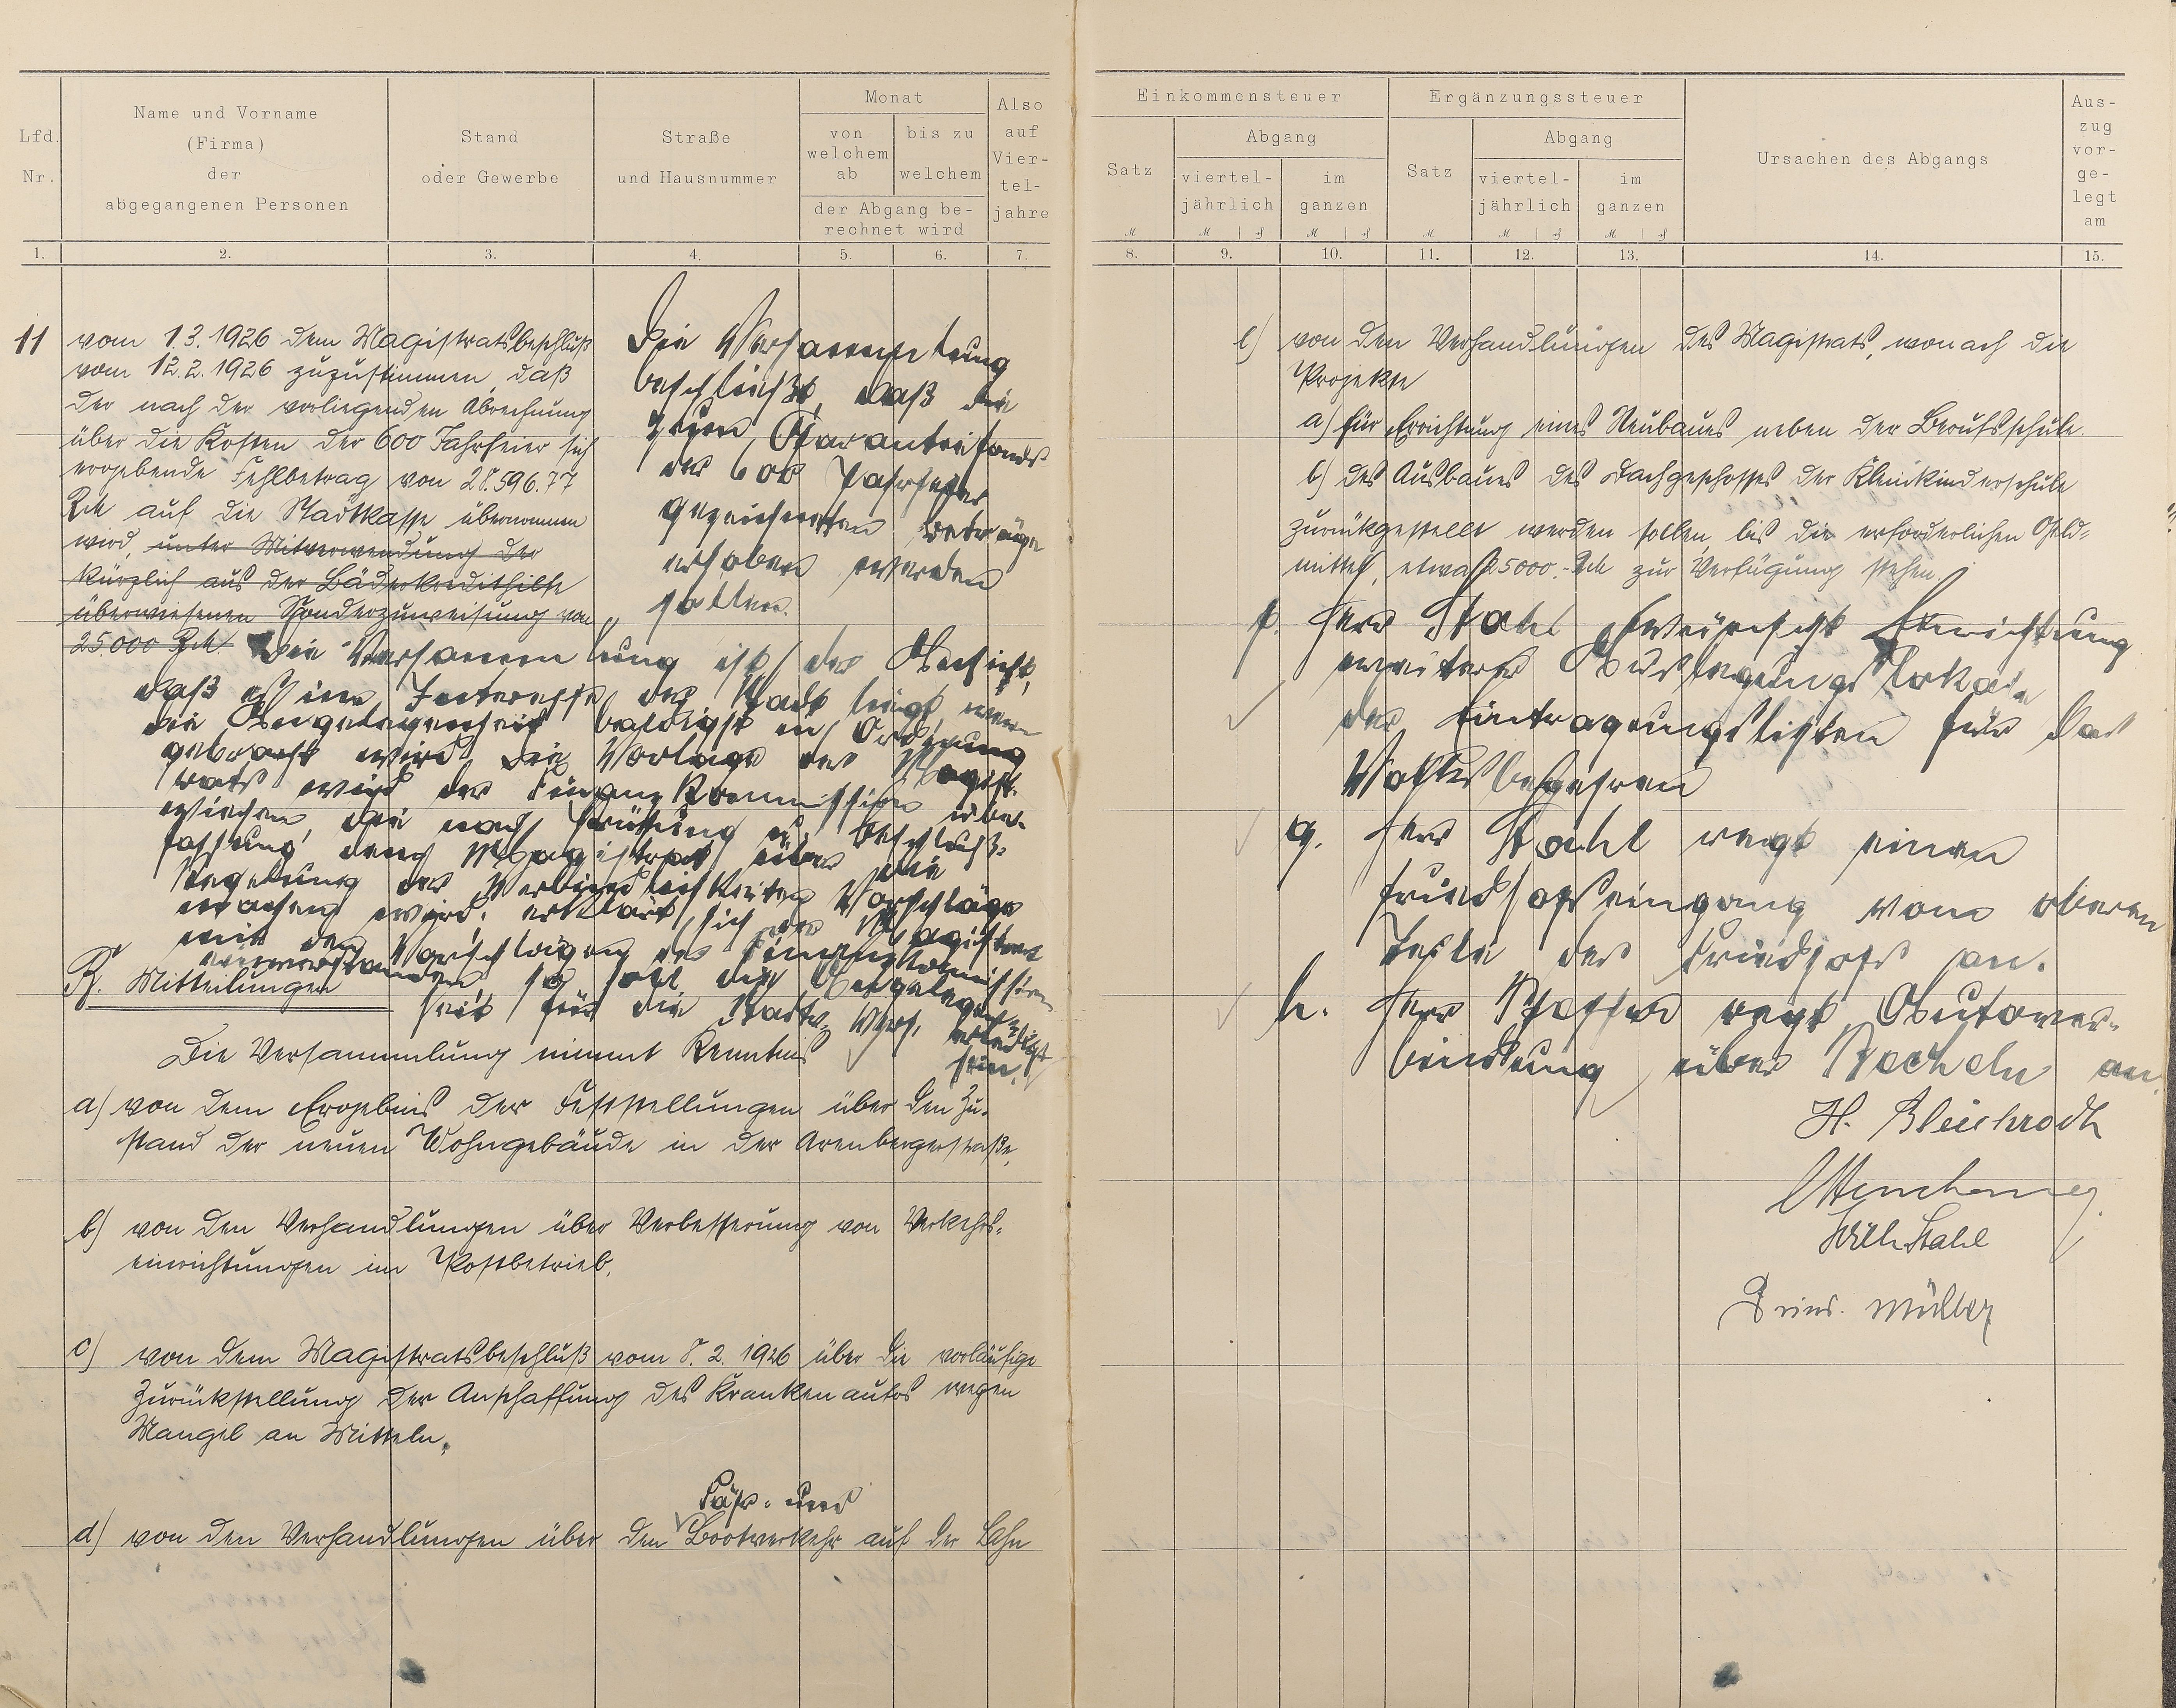 Lfd.
Nr.
Name und Vorname
(Firma)
der
abgegangenen Personen
Stand
oder Gewerbe
Straße
und Hausnummer
Monat
von
welchem
ab
bis zu
welchem
der Abgang be-
rechnet wird
Also
auf
Vier-
tel-
jahre
1. 2. 3. 4. 5. 6. 7.
11 vom 1.3.1926 dem Magistratsbeschluß
vom 12.2.1926 zuzustimmen, daß
der nach der vorliegenden Abrechnung
über die Kosten der 600 Jahrfeier sich
ergebende Fehlbetrag von 28.596.77
Rm auf die Stadtkasse übernommen
wird, unter Mitverwendung der
kürzlich aus der Bäderkredithilfe
überwiesenen Sonderzuweisung von
25.000 Rm
Die Versammlung
beschließt, daß die
zum Garantiefonds
der 600 Jahrfeier
gezeichneten Beträge
erhoben werden
sollen.
Die Versammlung ist der Ansicht,
daß es im Interesse der Stadt liegt, wenn
die Angelegenheit baldigst in Ordnung
gebracht wird. Die Vorlage des Magist-
rats wird der Finanzkommission über-
wiesen, die nach Prüfung u. Beschluß-
fassung dem Magistrat über die
Regelung der Verbindlichkeiten Vorschläge
machen wird. erklärt sich der Magistrat
mit den Vorschlägen der Finanzkommission
einverstanden, so soll die Angelegen-
heit für die Stadtv. Vers. erledigt
sein.
R. Mitteilungen
Die Versammlung nimmt Kenntnis
a) von dem Ergebnis der Feststellungen über den Zu-
stand der neuen Wohngebäude in der Arenbergerstraße,
b) von den Verhandlungen über Verbesserung von Verkehrs-
einrichtungen im Postbetrieb,
c) von dem Magistratsbeschluß vom 8.2.1926 über die vorläufige
Zurückstellung der Anschaffung des Krankenautos wegen
Mangel an Mitteln,
Fähr- und
d) von den Verhandlungen über den Bootverkehr auf der Lahn
Einkommensteuer
Satz
Abgang
viertel-
jährlich
im
ganzen
Ergänzungssteuer
Satz
Abgang
viertel-
jährlich
im
ganzen
Ursachen des Abgangs
Aus-
zug
vor-
ge-
legt
am
8. 9. 10. 11. 12. 13. 14. 15.
e) von den Verhandlungen des Magistrats, wonach die
Projekte
a) für Errichtung eines Neubaues neben der Berufsschule.
b) des Ausbaues des Dachgeschosses der Kleinkinderschule
zurückgestellt werden sollen, bis die erforderlichen Geld-
mittel, etwa 25000.- Rm zur Verfügung stehen.
f. Herr Stahl wünscht Einrichtung
weiterer Auslegungslokale
der Eintragungslisten für das
Volksbegehren
g. Herr Stahl regt einen
Friedhofseingang vom oberen
Teile des Friedhofs an.
h. Herr regt Autover-
bindung über Becheln an.
H. Bleichrodt
Wilh. Stahl
Müller